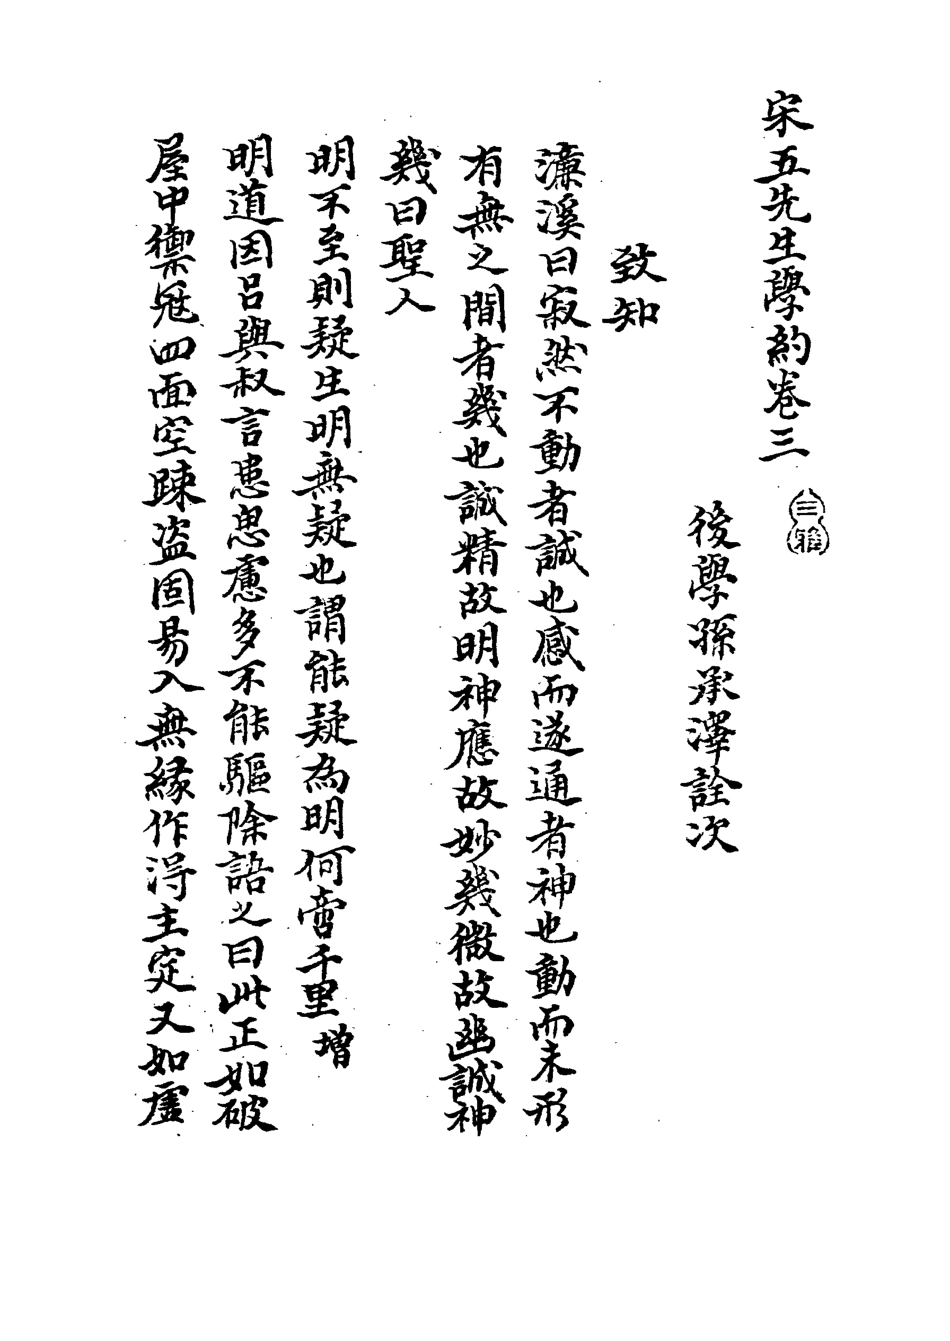 宋五先生學約卷三
後學孫承澤詮次
致知
濂溪曰寂然不動者誠也感而遂通者神也動而未形
有無之間者幾也誠精故明神應故妙幾微故幽誠神
幾曰聖人
明不至則疑生明無疑也謂能疑為明何啻千里增
明道因呂與叔言患思慮多不能驅除語之曰此正如破
屋中禦冦四面空踈盗固易入無緣作得主定又如虛